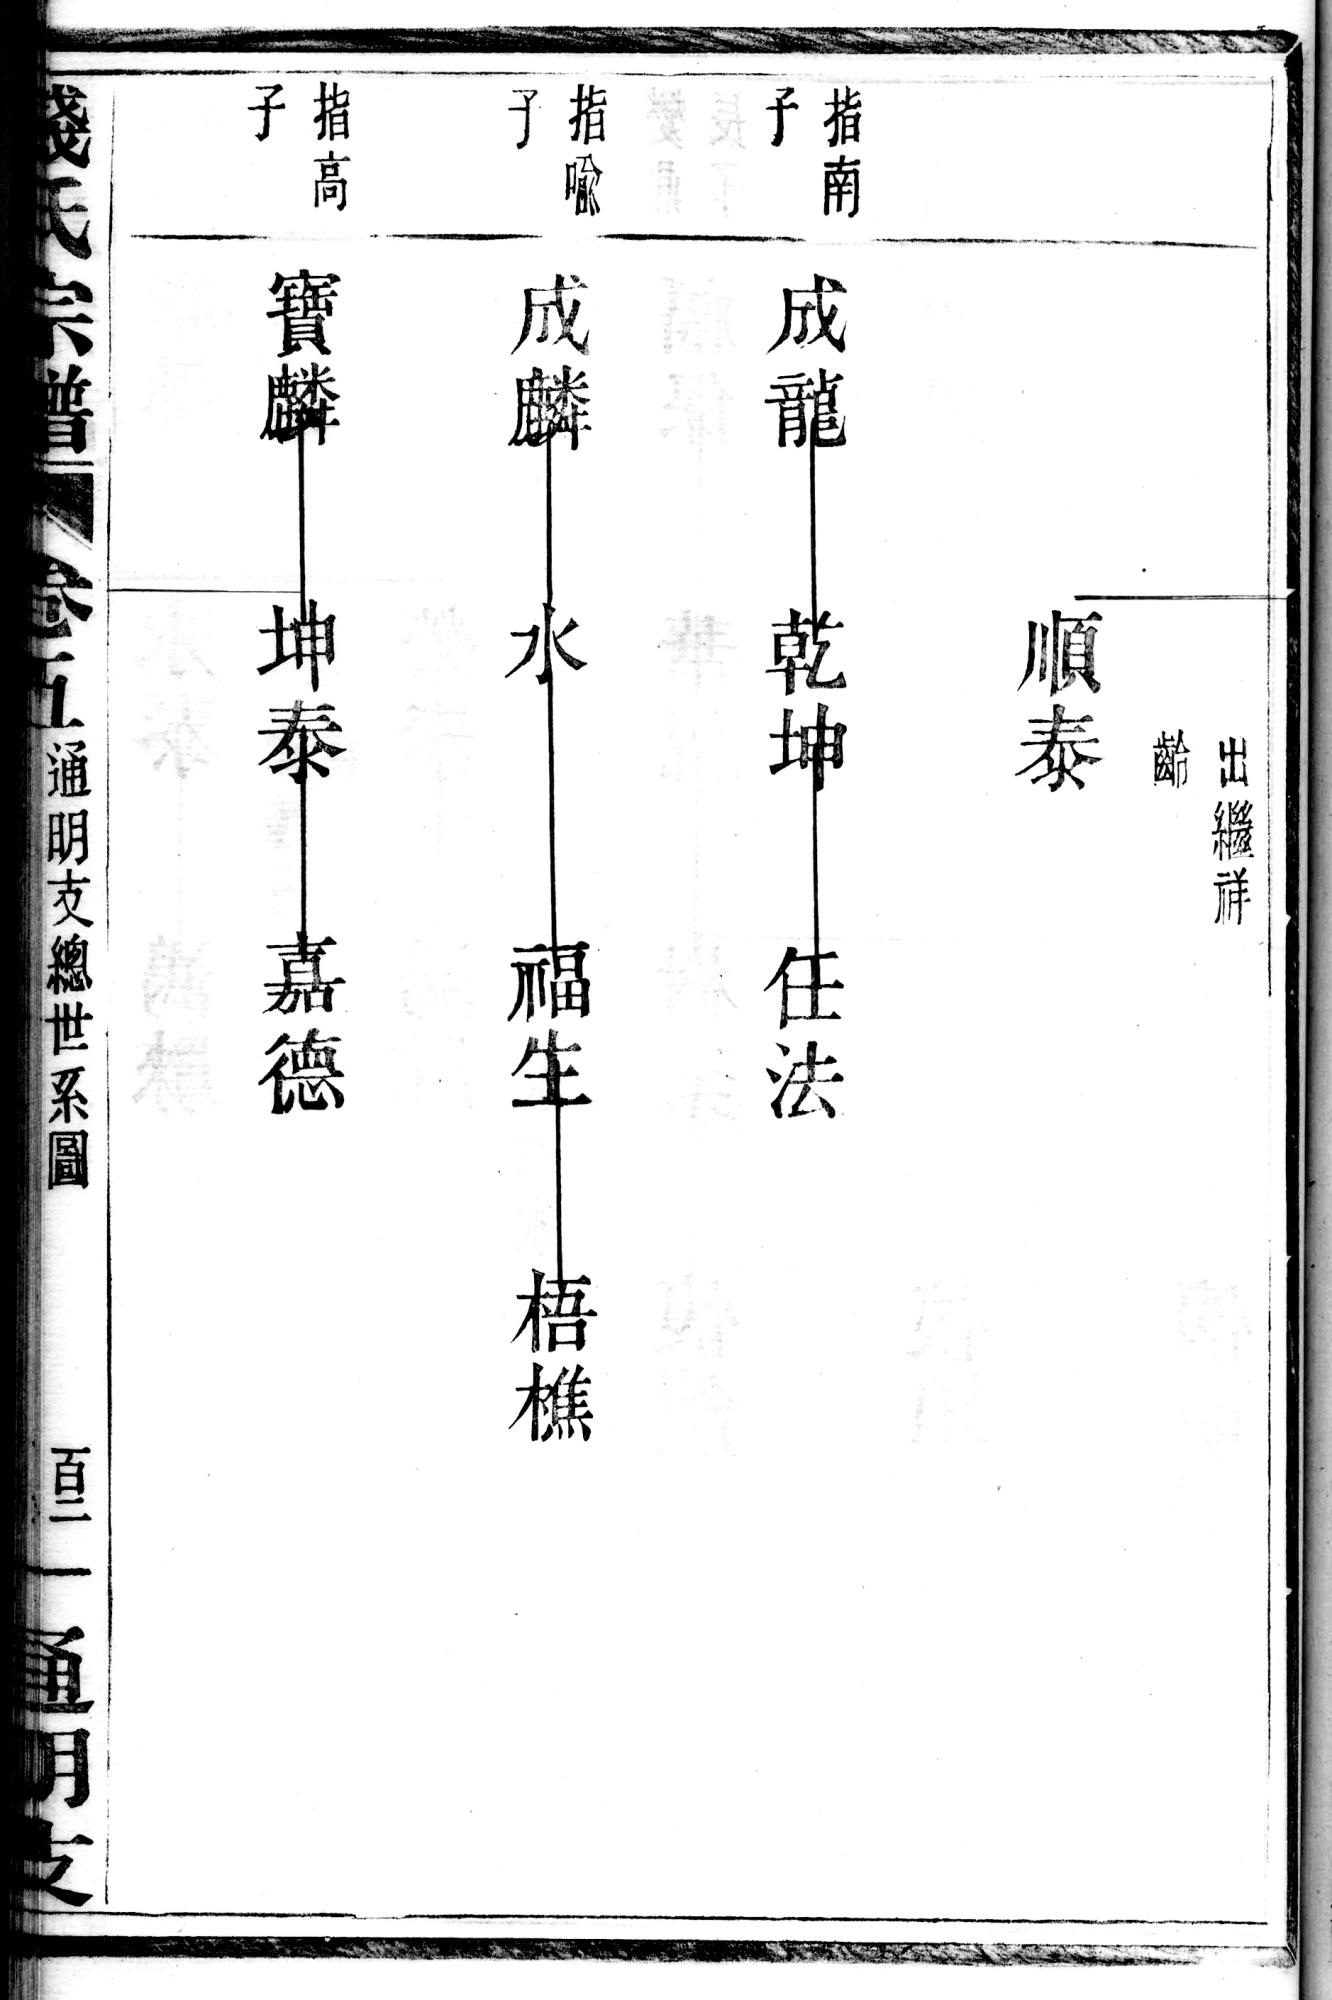 出繼祥
齡
順泰
指南
子
成龍
乾坤
任法
指喻
子
成麟
水
福生
梧樵
指高
子
寶麟
坤泰
嘉德
錢氏宗譜
卷五
通明支總世系圖
百二
通明支